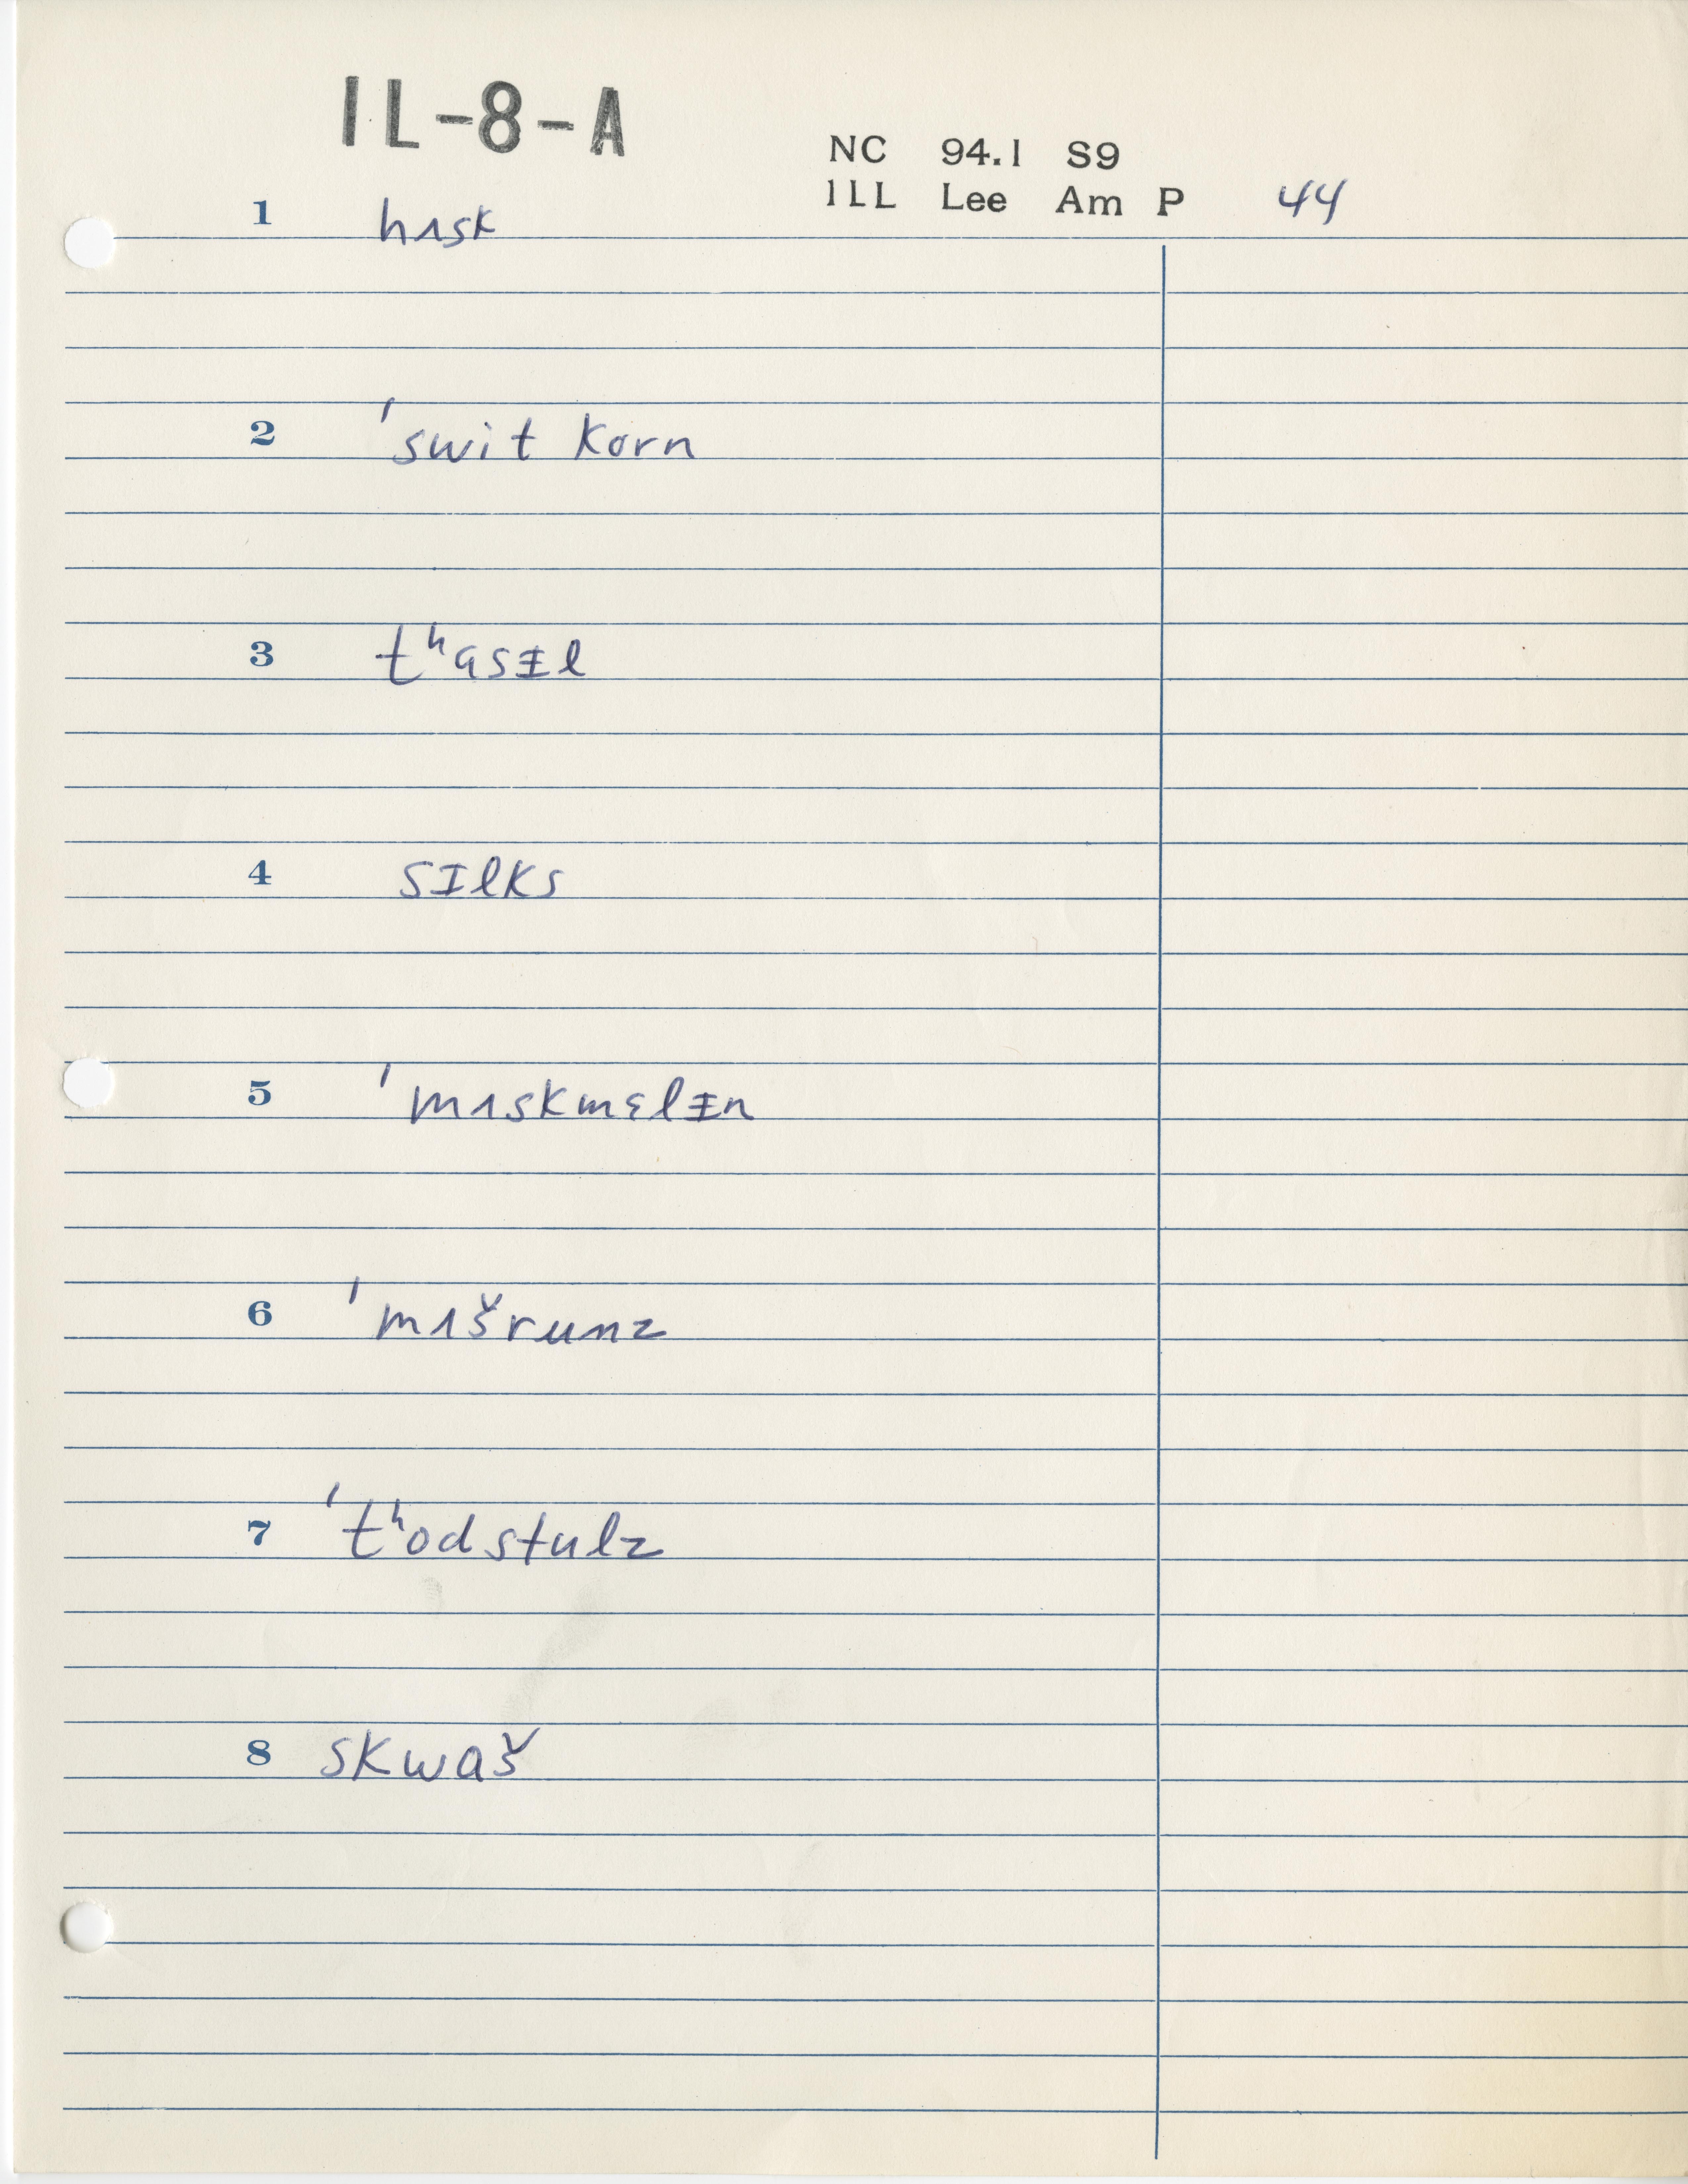 IL-8-A
NC 94.1 S9
ILL Lee Am P 44
1 hʌsk
2 ˈswit korn
3 tʰɑsᵻl
4 sɪlks
5 ˈmʌskmɛlᵻn
6 ˈmʌšrunz
7 ˈtʰodstulz
8 skwaš